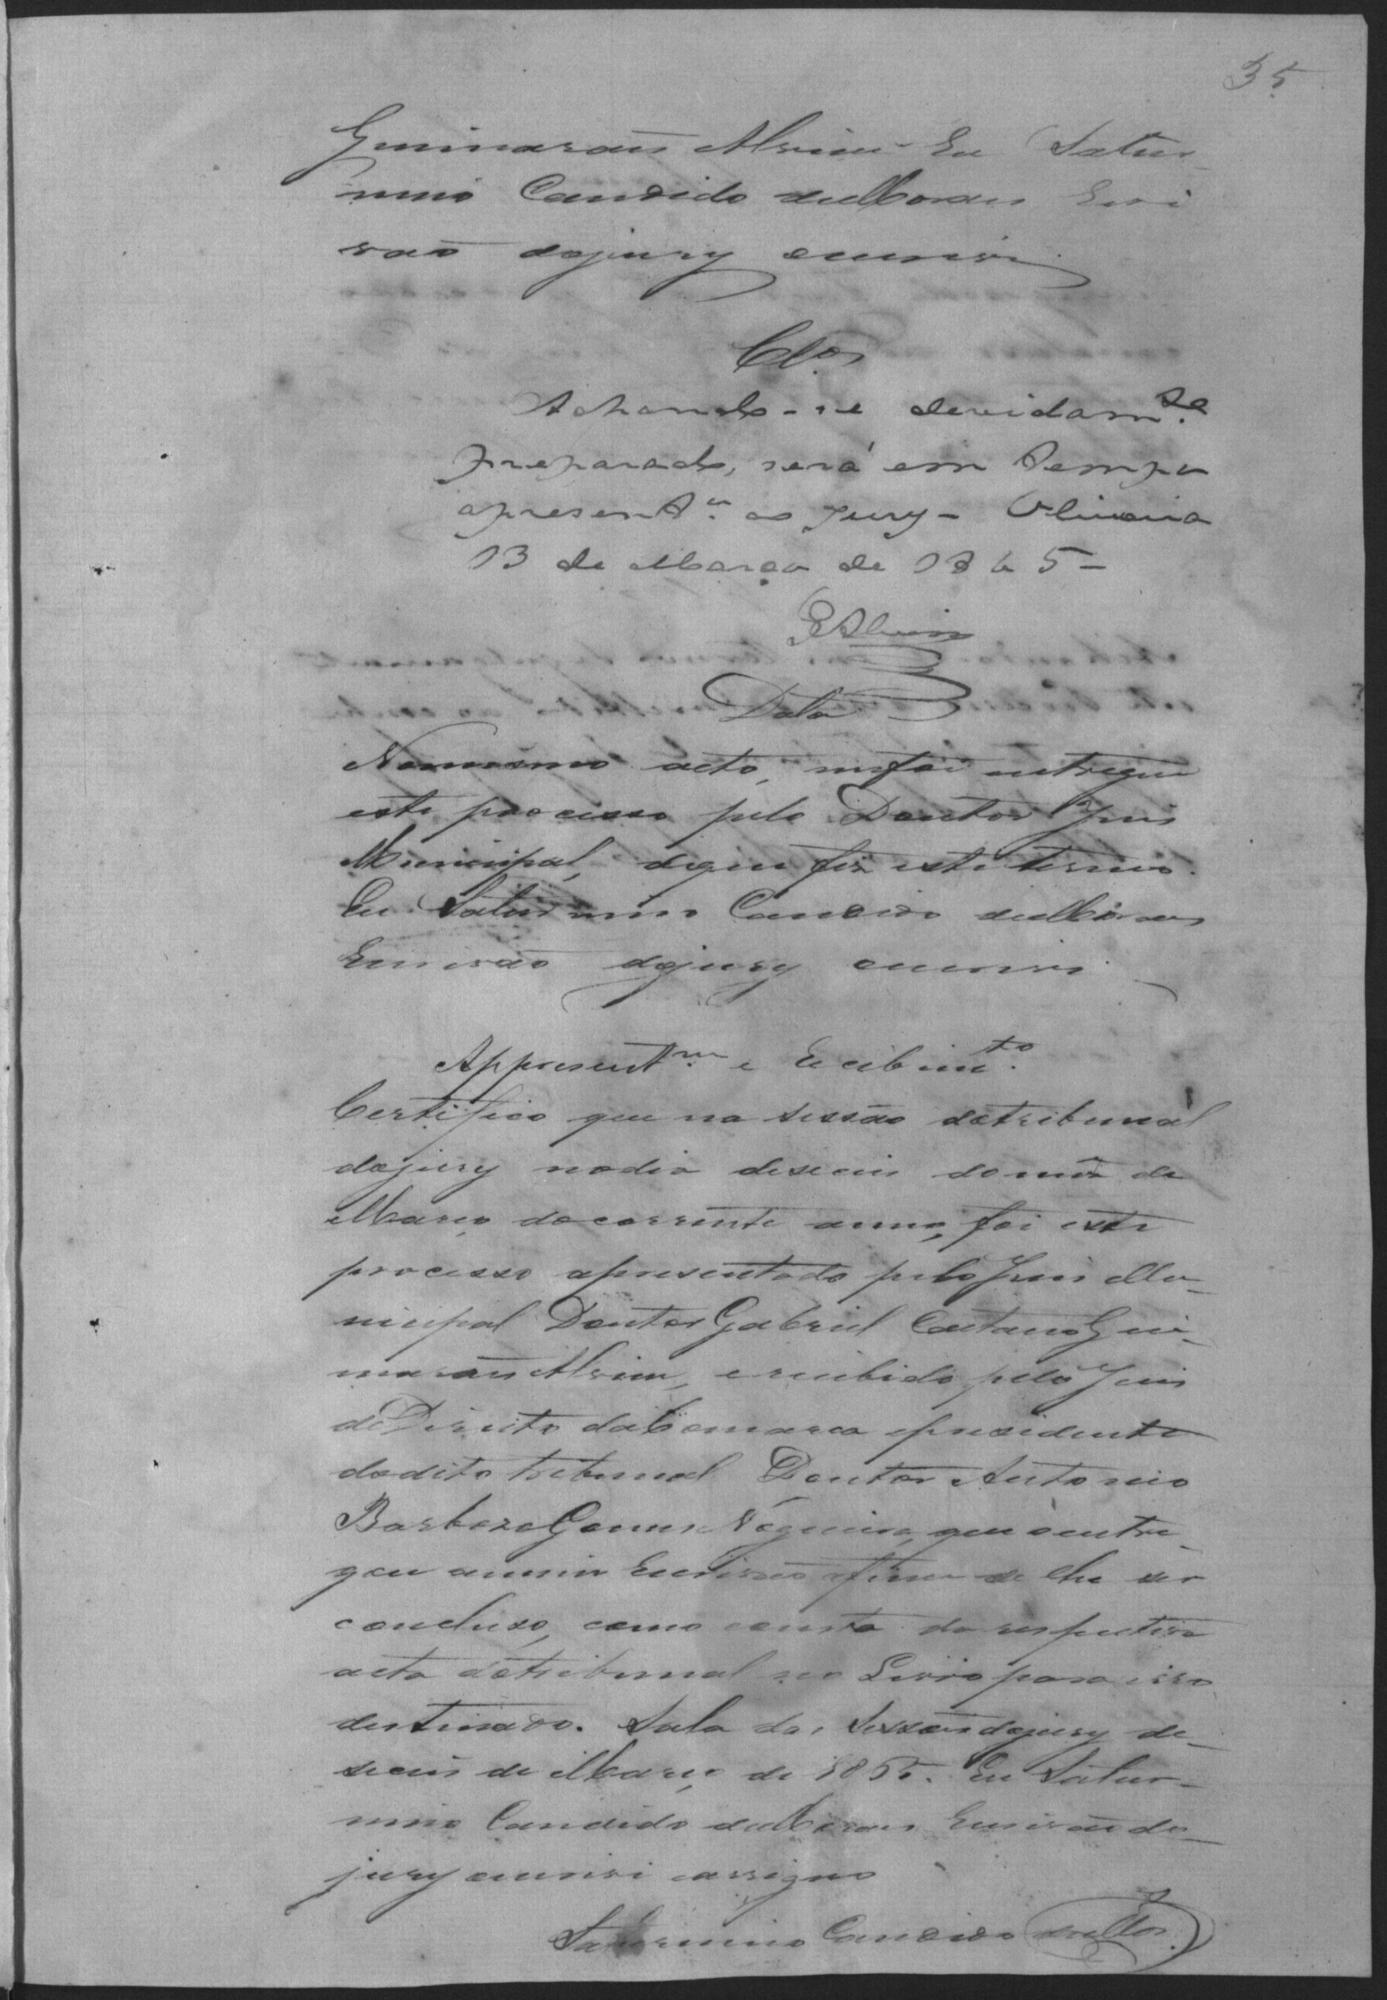 35
Guimarães Alvim. Eu Satur-
nino Candido de Moraes Escri
vão do jury escrevi
Cl.os
Achando-se devidam.te
preparado, será em tempo
apresent.o ao Jury - Oliveira
13 de Março de 1865 -
GAlvim
Data
No mesmo acto, me foi entregue
este processo pelo Doutor Juis
Municipal, de que fis este termo.
Eu Saturnino Candido de Moraes
Escrivão do jury escrevi
Appresent.m e Recebim.to
Certifico que na sessão do tribunal
do jury no dia deseceis do mes de
Março do corrente anno, foi este
processo apresentado pelo Juis Mu-
nicipal Doutor Gabriel Caetano Gui-
marães Alvim, e recebido pelo Juis
de Direito da Comarca e presidente
do dito tribunal Doutor Antonio
Barboza Gomes Nogueira, que o entre-
gou a mim Escrivão afim de lhe ser
concluso, como consta da respectiva
acta do tribunal no Livro para isso
destinado. Sala das Sessões do jury de-
seceis de Março de 1865. Eu Satur-
nino Candido de Moraes Escrivão do
jury escrevi e assigno
Saturnino Candido de Mor.